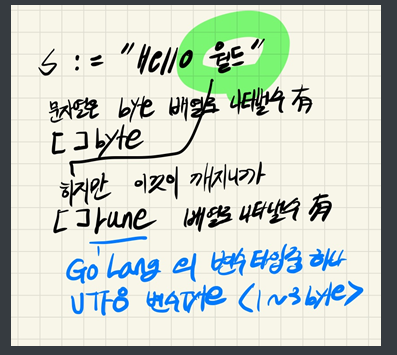 s := "Hello 월드"
문자열은 byte 배열로 나타낼수 有
[ ]byte
하지만 이것이 깨지니까
[ ]rune 배열로 나타낼수 有
Go Lang 의 변수타입중 하나
UTF8 변수 <1~3byte>